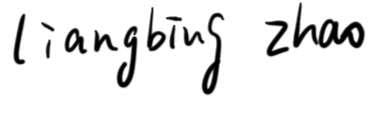 liangbing zhao